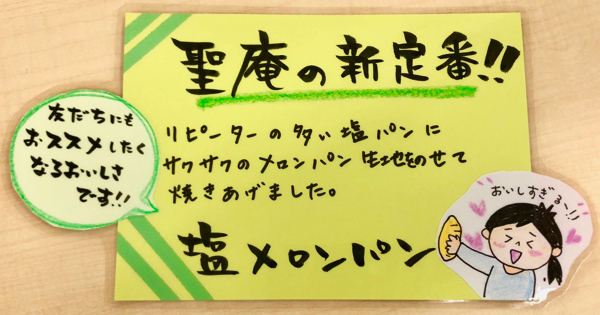 聖庵の新定番!!
友だちにも
おススメしたく
なるおいしさ
です!!
リピーターの多い塩パンに
サクサクのメロンパン生地をのせて
焼きあげました。
塩メロンパン
おいしすぎるー!!